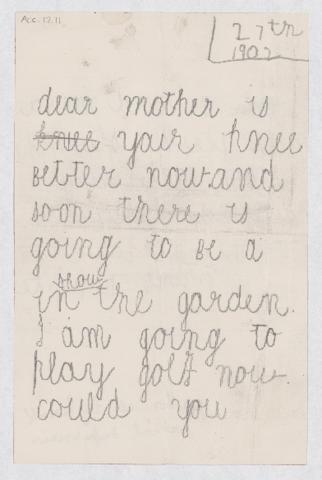 Acc. 12.11
27th
1902
dear mother is
knee your knee
better now.and
soon there is
going to be a
show
in the garden.
I am going to
play golf now.
could you